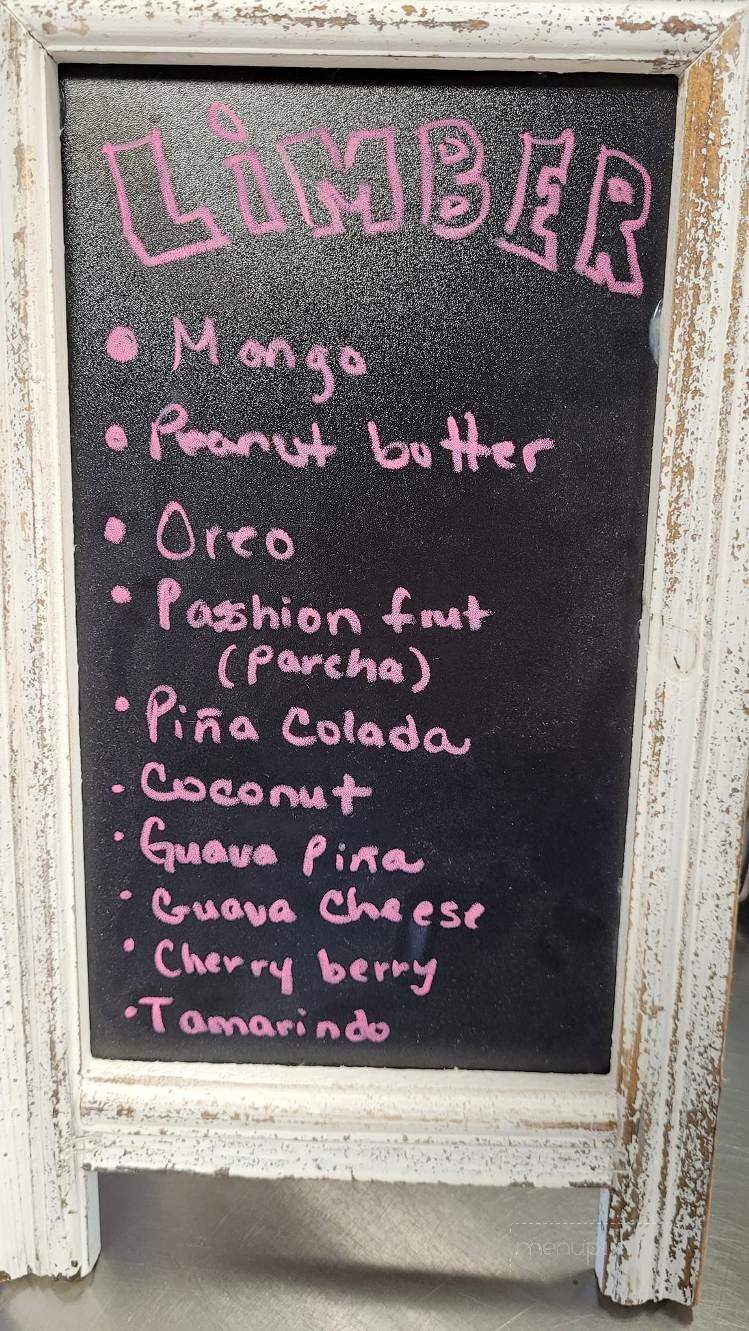 LiMBER
• Mango
• Peanut butter
• Oreo
• Passhion fruit
(Parcha)
• Piña Colada
• Coconut
• Guava Piña
• Guava Cheese
• Cherry berry
• Tamarindo